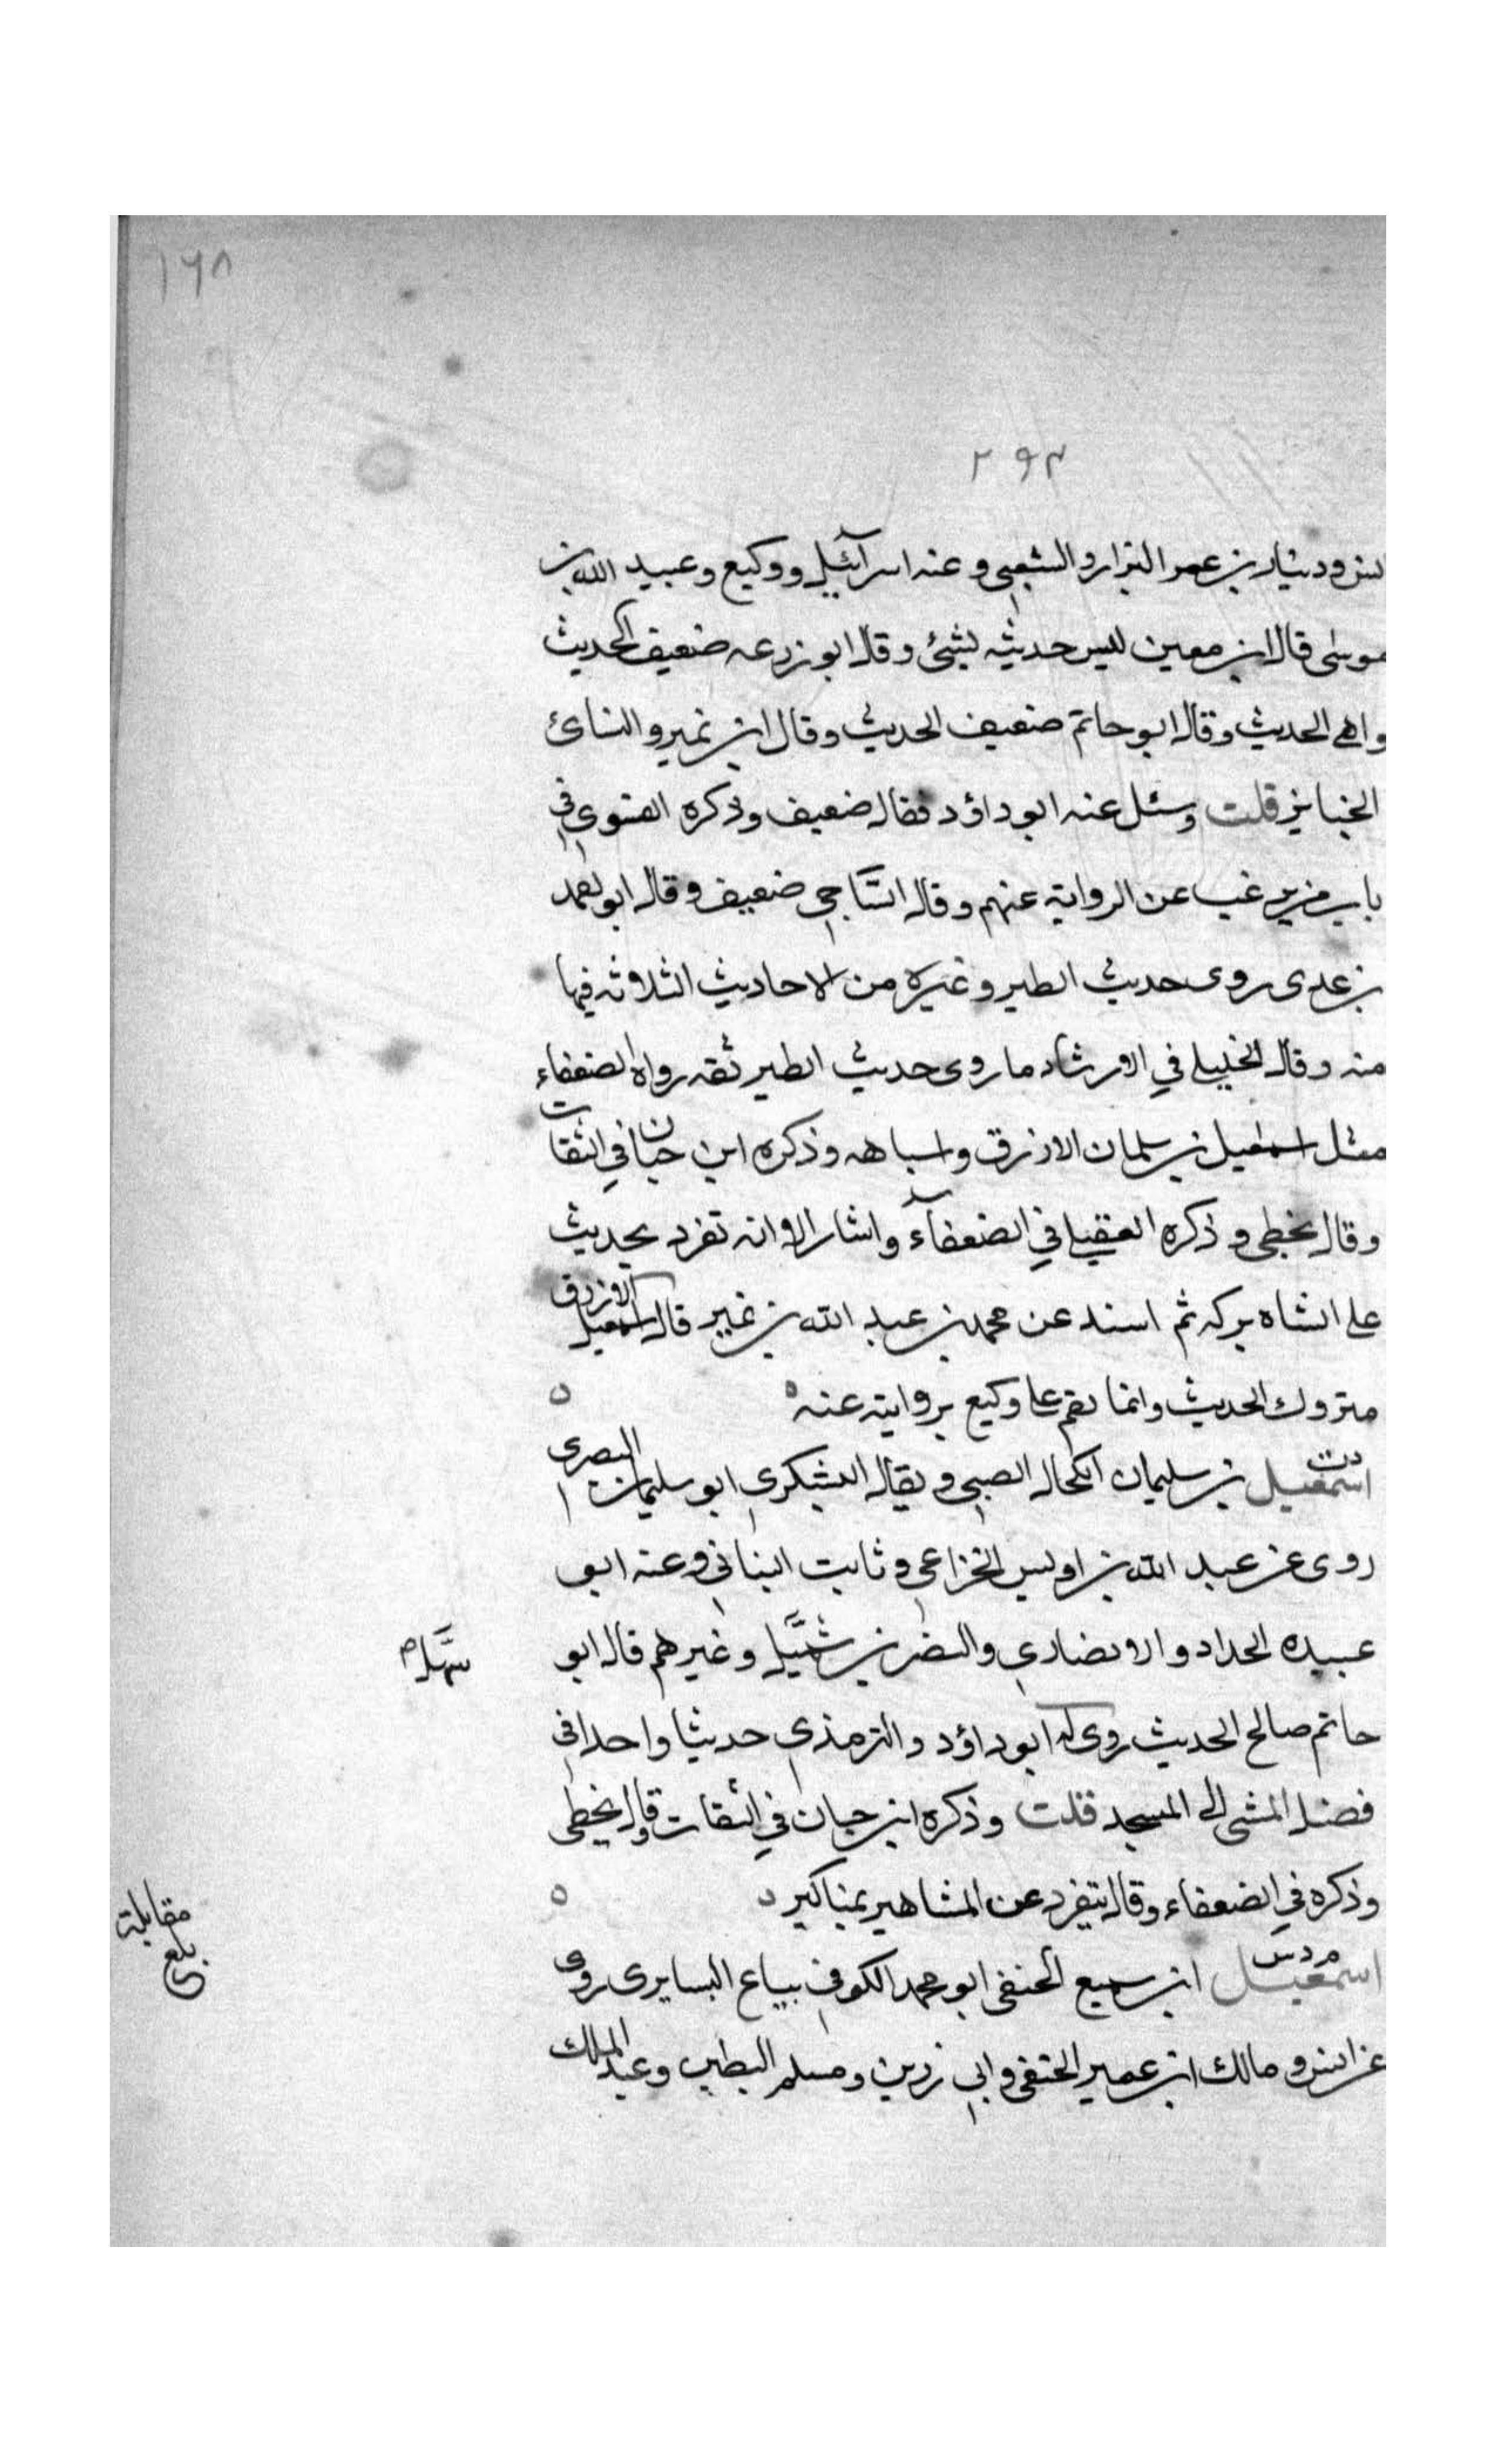 ١٦٨
٢٩٣
انس ودينار بن عمر البزار والشعبى وعنه اسرآئيل ووكيع وعبيد الله بن
موسى قال ابن معين ليس حديثه بشئ وقال ابو زرعه ضعيف الحديث
واهى الحديث وقال ابو حاتم ضعيف الحديث وقال ابن نمير والنسائ
قلت وسئل عنه ابو داؤد فقال ضعيف وذكره الفسوى فى
باب من يرغب عن الرواية عنهم وقال الساجى ضعيف وقال ابو احمد
بن عدى روى حديث الطير وغيره من الاحاديث الثلاثه فيها
منه وقال الخليلى في الارشاد ما روى حديث الطير ثقه رواه الضعفاء
مثل اسمعيل بن سلمان الازرق واسباهه وذكره ابن حبان في الثقات
وقال يخطى وذكره العقيلى في الضعفآء واشار الا انه تفرد بحديث
على الشاه بركه ثم اسند عن محمد بن عبد الله بن نمير قال اسمعيل الازرق
متروك الحديث وانما نقم على وكيع بروايته عنه ه
د ت
اسمعيل بن سليمان الكحال الضبى ويقال اليشكرى ابو سليمان البصرى
روى عن عبد الله بن اوليس الخزاعى وثابت البنانى وعنه ابو
عبيده الحداد والانصارى والنضر بن شميل وغيرهم قال ابو
حاتم صالح الحديث روى له ابو داؤد والترمذى حديثا واحدا فى
فضل المشى الى المسجد قلت وذكره ابن حبان في الثقات وقال يخطى
وذكره في الضعفاء وقال يتفرد عن المشاهير بمناكير ه
م د س
اسمعيل ابن سميع الحنفى ابو محمد الكوفى بياع السابرى روى
عن انس ومالك ابن عمير الحنفى وابى رزين ومسلم البطين وعبد الملك
مقابلة
بلغ